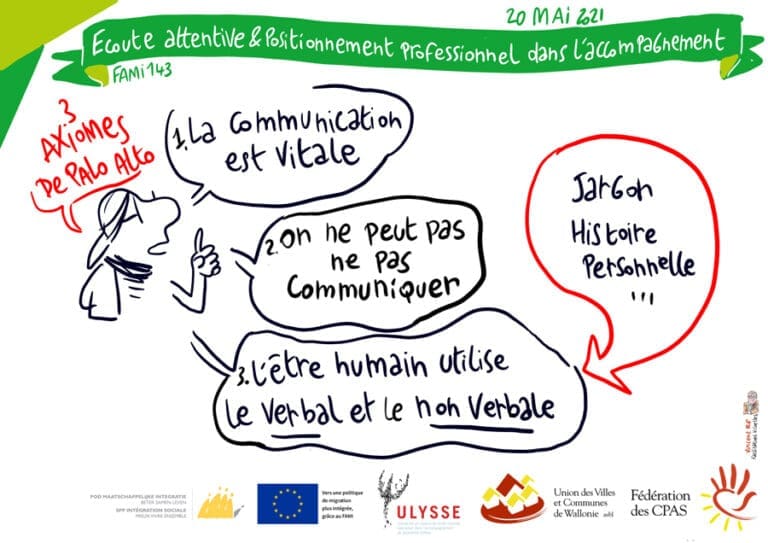 20 MAi 2021
Ecoute attentive & Positionnement professionnel dans l'accompagnement
FAMi 143
3
AXiOMES
De PAlo Alto
1. La communication
est vitale
2. On ne peut pas
ne pas
communiquer
3. L'être humain utilise
le verbal et le non verbale
JarGon
Histoire
Personnelle
...
POD MAATSCHAPPELIJKE INTEGRATIE
BETER SAMEN LEVEN
SPP INTÉGRATION SOCIALE
MIEUX VIVRE ENSEMBLE
Vers une politique
de migration
plus intégrée,
grâce au FAMI
ULYSSE
Union des Villes
et Communes
de Wallonie asbl
Fédération
des CPAS